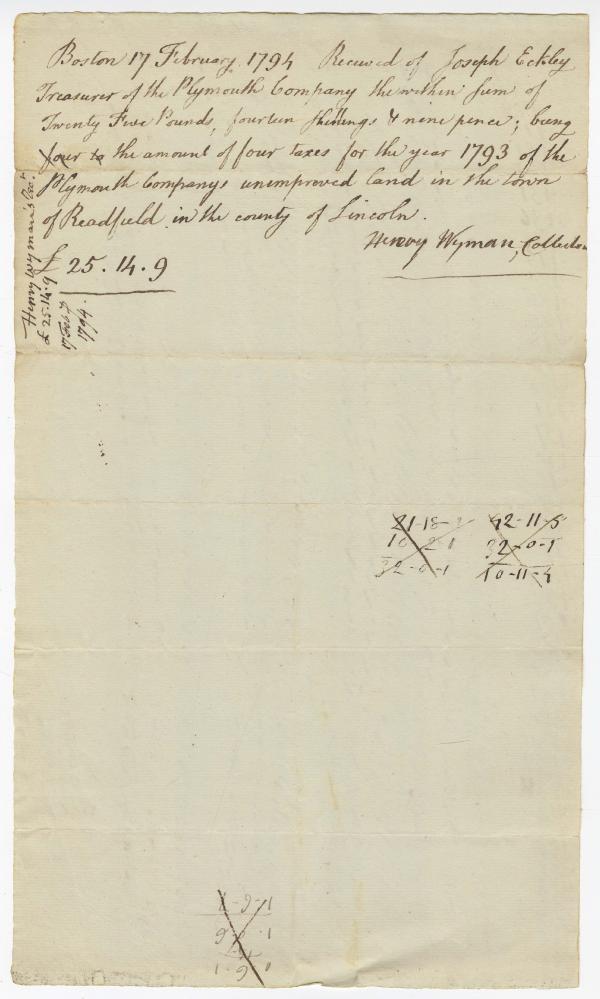 Boston 17 February 1794 Received of Joseph Eckley
Treasurer of the Plymouth Company the within Sum of
Twenty Five Pounds, fourteen shillings & nine pence; being
four to the amount of four taxes for the year 1793 of the
Plymouth Companys unimproved land in the town
of Readfield in the county of Lincoln.
Henry Wyman, Collector
£ 25. 14. 9
Henry Wyman's
£ 25.14.9
17 Feby
1794.
21-18-
10-2-1
32-0-1
42-11-5
32-0-1
10-11-4